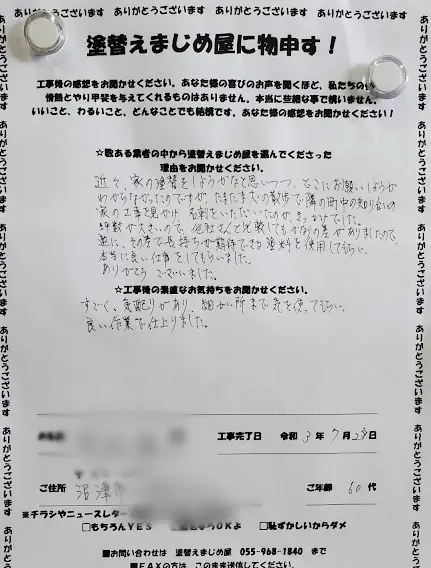 ありがとうございます ありがとうございます ありがとうございます ありがとうございます
塗替えまじめ屋に物申す！
工事後の感想をお聞かせください。あなた様の喜びのお声を聞くほど、私たちの
情熱とやり甲斐を与えてくれるものはありません。本当に些細な事で構いません。
いいこと、わるいこと、どんなことでも結構です。あなた様の感想をお聞かせください！
☆数ある業者の中から塗替えまじめ屋を選んでくださった
理由をお聞かせください。
近々、家の塗替をしようかなと思いつつ、どこにお願いしようか
わからなかったのですが、たまたま犬の散歩で隣の町中の知り合い
の家の工事を見かけ、名刺をいただいたのがきっかけでした。
坪数が大きいので、他社さんと比較してもかなりの差がありましたので、
逆に、その差で長持ちが期待できる塗料を使用してもらい、
本当に良い仕事をしてもらいました。
ありがとうございました。
☆工事後の素直なお気持ちをお聞かせください。
すごく、気配りがあり、細かい所まで気を使ってもらい、
良い作業で仕上りました。
工事完了日 令和 3年 7月 日
ご住所 沼津市
ご年齢 60代
※チラシやニュースレター
□もちろんYES OKよ □恥ずかしいからダメ
■お問い合わせは 塗替えまじめ屋 055-968-1840 まで
■FAXの方は、このまま送信してください。
ありがとうございます ありがとうございます ありがとうございます ありがとうございます
ありがとうございます ありがとうございます ありがとうございます ありがとうございます